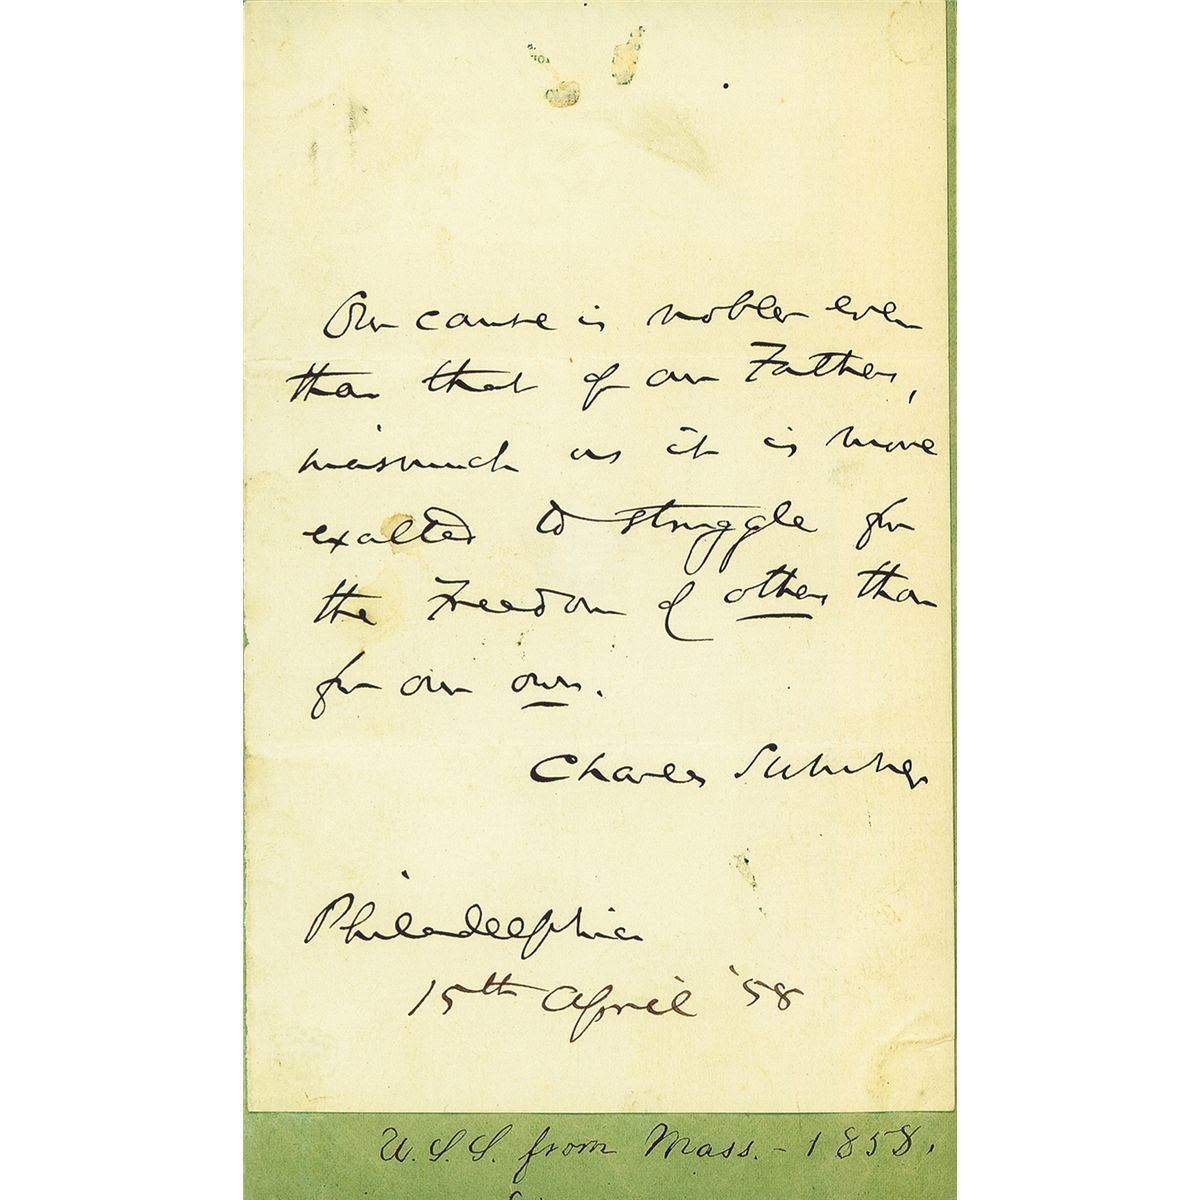 Our cause is nobler even
than that of our Fathers,
inasmuch as it is more
exalted to struggle for
the Freedom of others than
for our own.
Charles Sumner
Philadelphia
15th April '58
U.S.S. from Mass. - 1858.